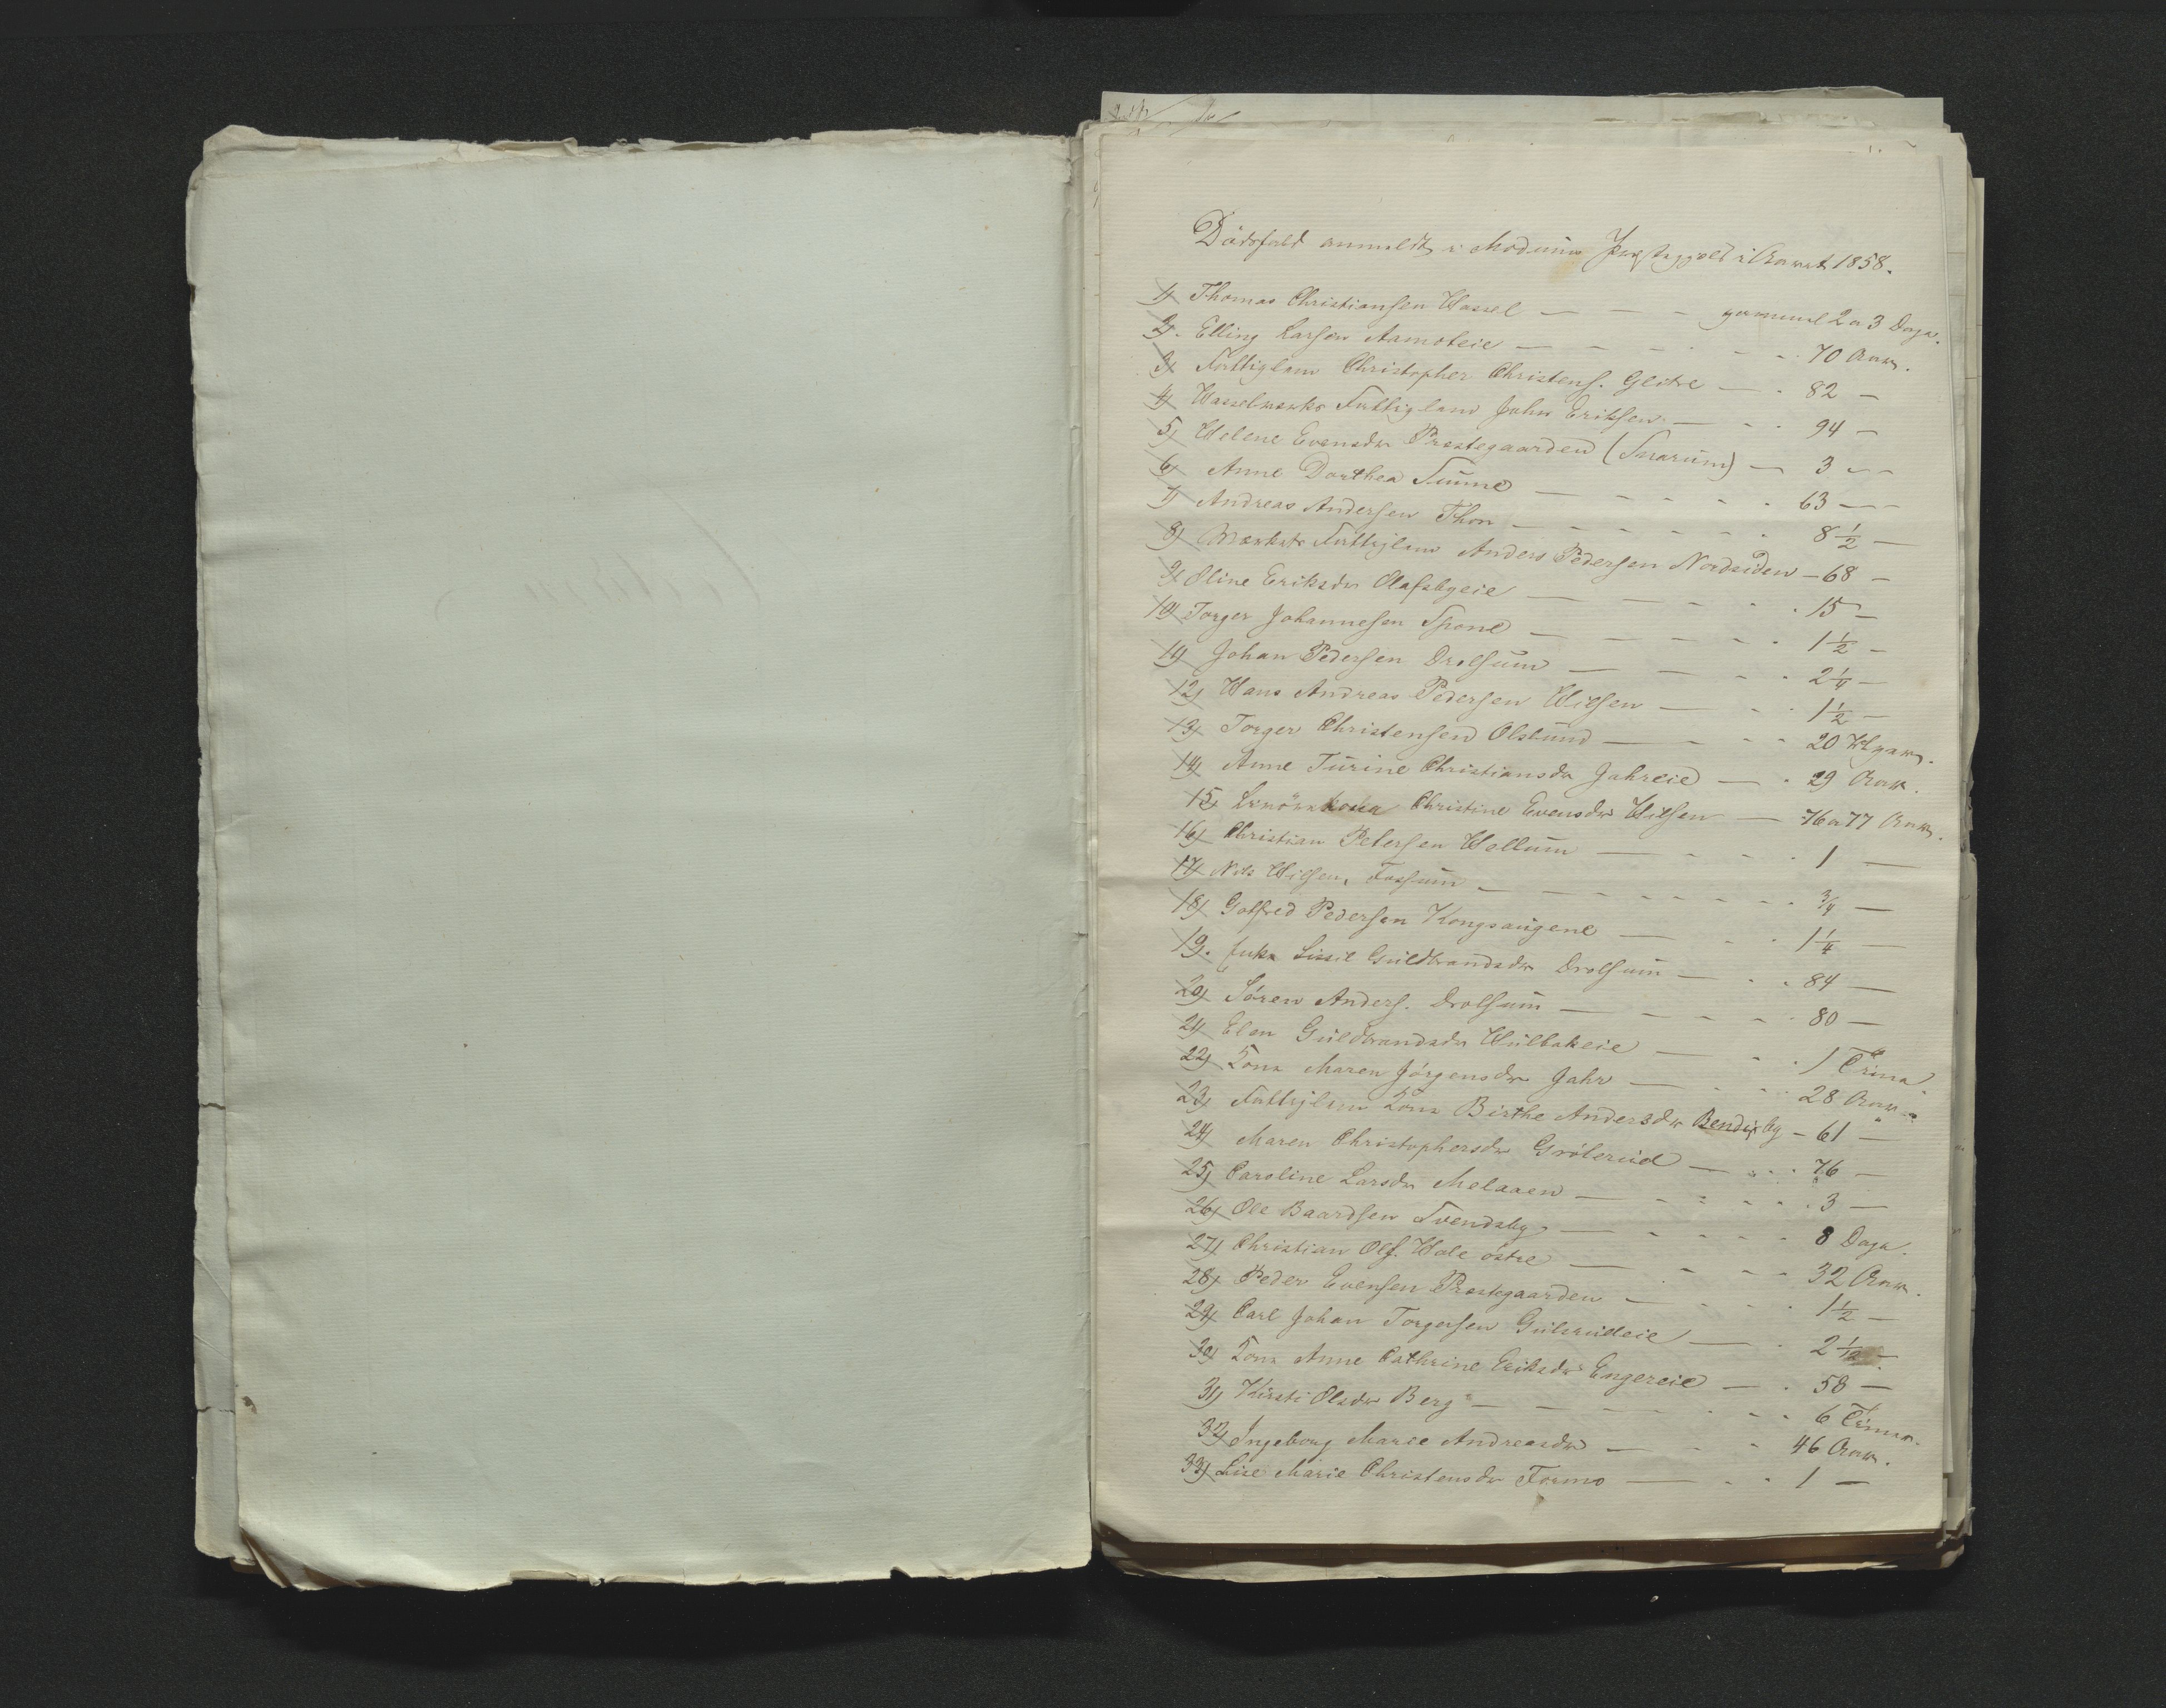 Dödsfald anmeldt i Modums Præstegjeld i Aaret 1858.
1) Thomas Christiansen Hassel — — - gammel 2 a 3 Dage.
2). Elling Larsen Aamoteie — - - - - - 70 Aar.
3) Fattiglem Christopher Christens. Glitre — - 82 -
4) Hasselværks Fattiglem John Eriksen — - - 94 -
5) Helene Evensdr Præstegaarden (Snarum) — 3 --
6) Anne Dorthea — - - - - - 63 --
7) Andreas Andersen Thon — - - - - - 8 1/2 -
8) Fattiglem Anders Pedersen Nordsiden - 68 -
9) Oline Eriksdr Olafsbyeie — - - - - 15 -
10) Torger Johannesen Spone — - - - - 1 1/2 -
11) Johan Pedersen Drolsum — - - - 2 1/4 -
12) Hans Andreas Pedersen Hilsen — - - 1 1/2 -
13) Torger Christensen — - - - 20 Uger.
14) Anne Turine Christiansdr Jahreie — - 29 Aar.
15) Christine Evensdr Hilsen — 76 a 77 Aar.
16) Christian Petersen Hellum — - - - - 1 —
17) Nils Hilsen, Fossum - - - - - - - 3/4 —
18) Gotfred Pedersen Kongsaugene — - - 1 1/4 —
19. Enke Sissil Guldbrandsdr Drolsum — - - 84 —
20) Sören Anders. Drolsum — - - - - 80 —
21) Elen Guldbrandsdr Hulbakeie — - - 1 Time.
22) Kone Maren Jörgensdr Jahr — - - - 28 Aar
23) Fattiglem Kone Birthe Andersdr Bendixby - 61 —
24) Maren Christophersdr Gröterud — - - - 76 —
25) Caroline Larsdr Melaaen — - - - - 3 —
26) Ole Baardsen Svendsby — - - - - 8 Dage.
27) Christian Ols. Hole östre — - - - 32 Aar.
28) Peder Evensen Præstegaarden — - - - 1 1/2 —
29) Carl Johan Torgersen Gulsrudeie — - 2 1/2 —
30) Kone Anne Cathrine Eriksdr Engereie — - 58 —
31) Kirsti Olsdr Berg — — - - - - 6 Timer.
32) Ingeborg Marie Andreasdr — - - 46 Aar.
33) Lise Marie Christensdr Formo — - - 1 —